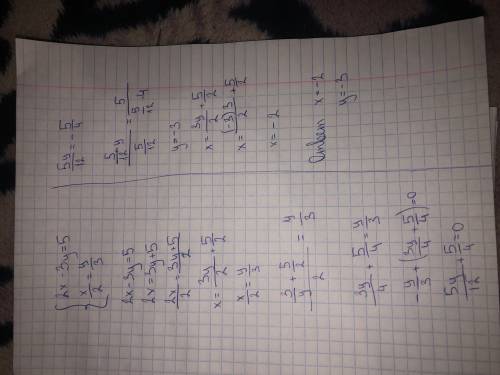 {2x-3y=5
x/2=y/3
2x-3y=5
2x=3y+5
2x/2=(3y+5)/2
x=3y/2+5/2
x/2=y/3
3y/4+5/4=y/3
-y/3+(3y/4+5/4)=0
5y/12+5/4=0
5y/12=-5/4
y=-3
x=3y/2+5/2
x=(-3)3/2+5/2
x=-2
Ответ x=-2
y=-3